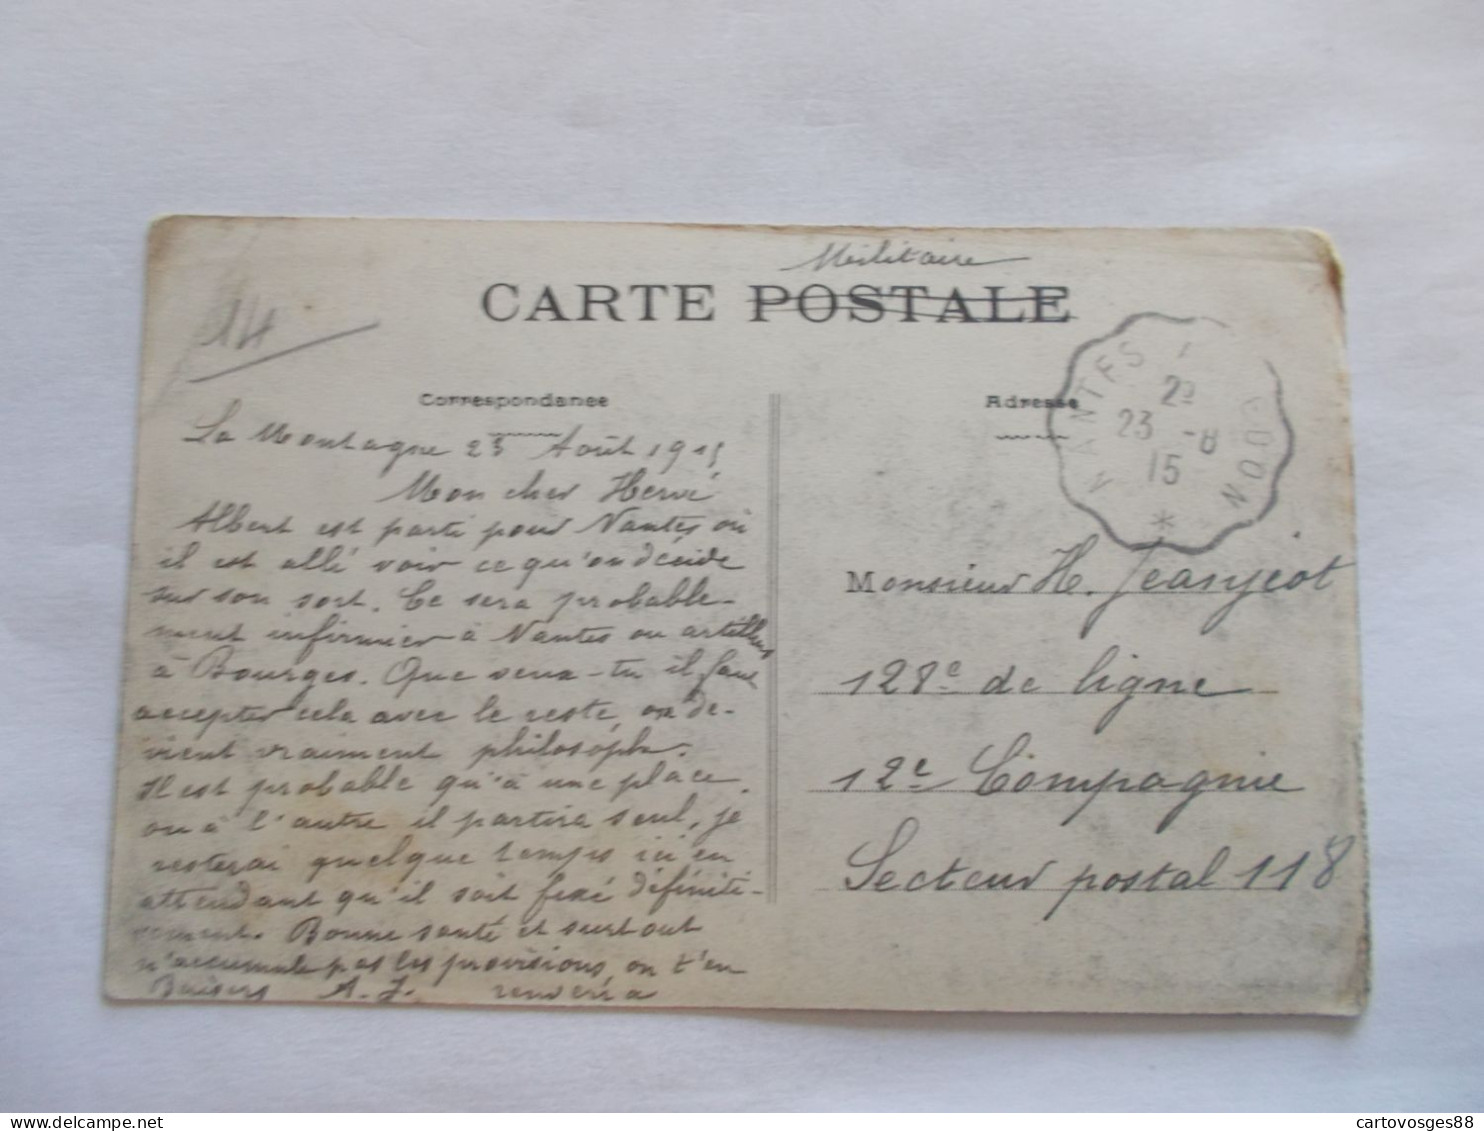 Militaire
CARTE POSTALE
14
Correspondance
Adresse
NANTES
2º
23 -8
15
La Montagne 23 Août 1915
Mon cher Hervé
Albert est parti pour Nantes où
il est allé voir ce qu'on décide
sur son sort. Ce sera probable-
ment infirmier à Nantes ou artilleur
à Bourges. Que veux-tu il faut
accepter cela avec le reste, on de-
vient vraiment philosophe.
Il est probable qu'à une place
ou à l'autre il partira seul, je
resterai quelque temps ici en
attendant qu'il soit fixé définiti-
vement. Bonne santé et surtout
n'accumule pas les provisions, on t'en
Baisers A. J. renverra
Monsieur H. Jeanjeot
128e de ligne
12e Compagnie
Secteur postal 118
cartovosges88